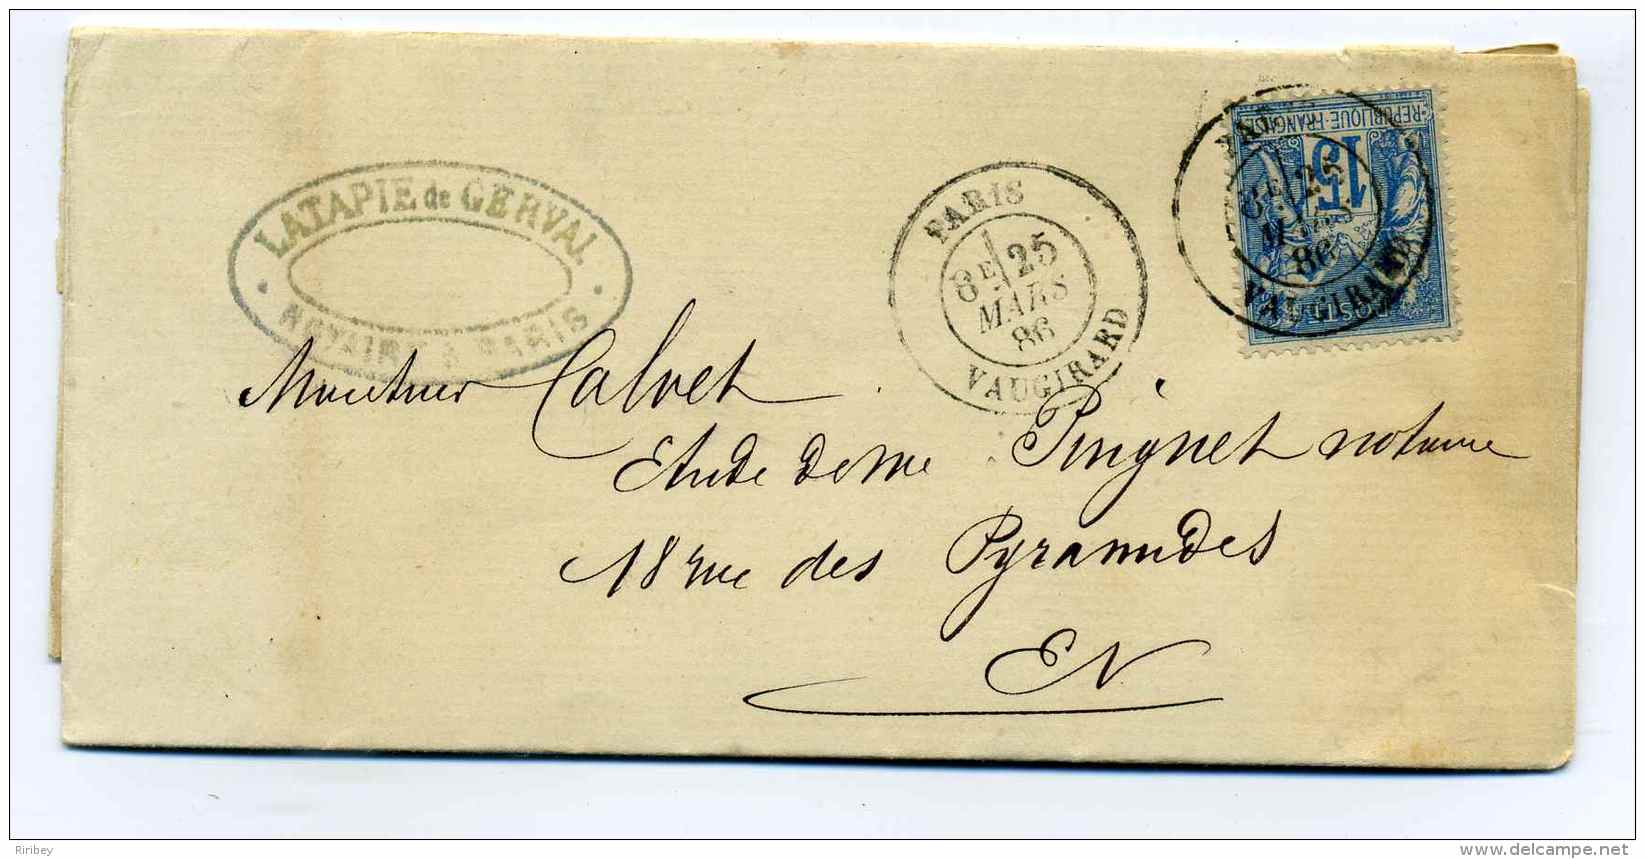 LATAPIE de GERVAL
NOTAIRE A PARIS
PARIS
6E 25
MARS
86
VAUGIRARD
REPUBLIQUE FRANÇAISE
15
POSTES
PARIS
6E 25
MARS
86
VAUGIRARD
Monsieur Calvet
Etude de Me Puignet notaire
18 rue des Pyramides
EV
Riribey
www.delcampe.net